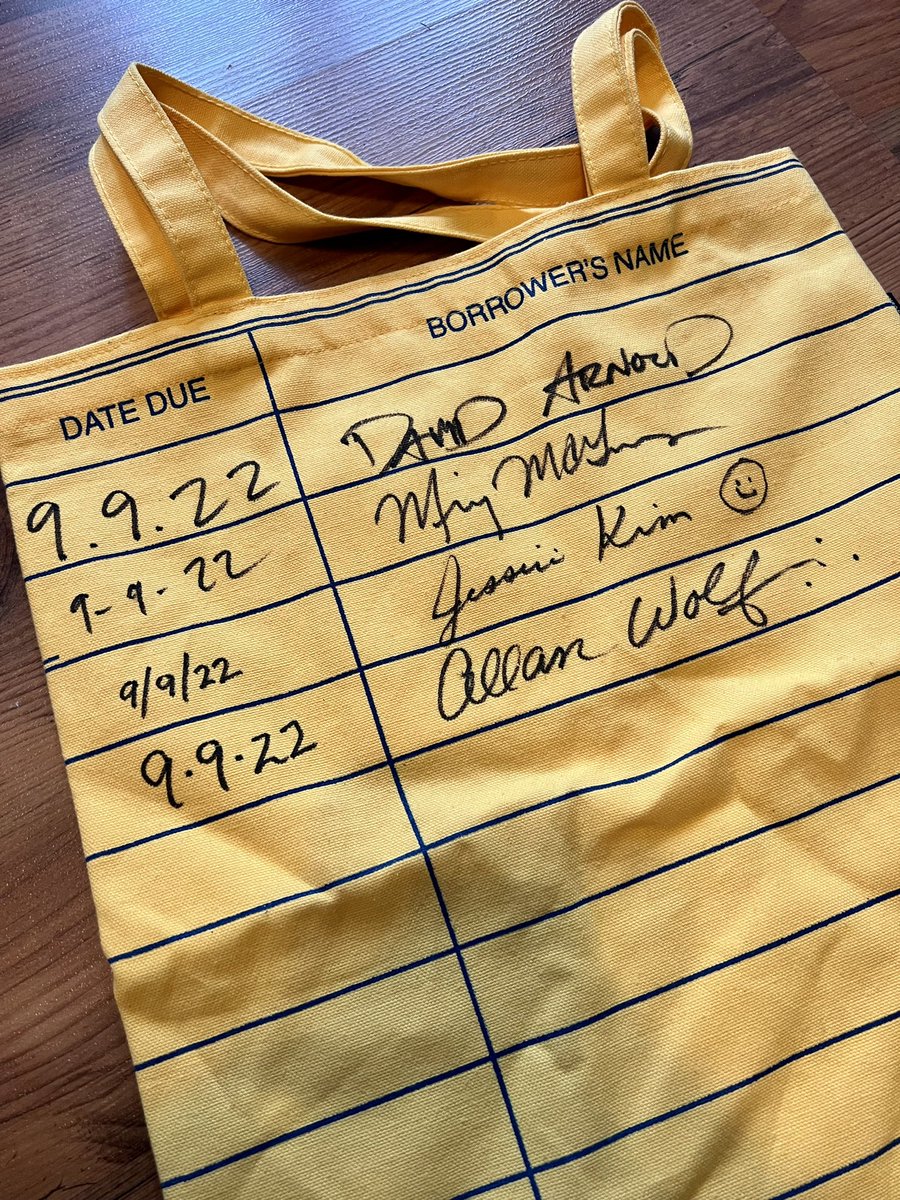 DATE DUE BORROWER'S NAME
9.9.22 DAVID ARNOLD
9-9-22
9/9/22 Jessie Kim
9.9.22 Allan Wolf